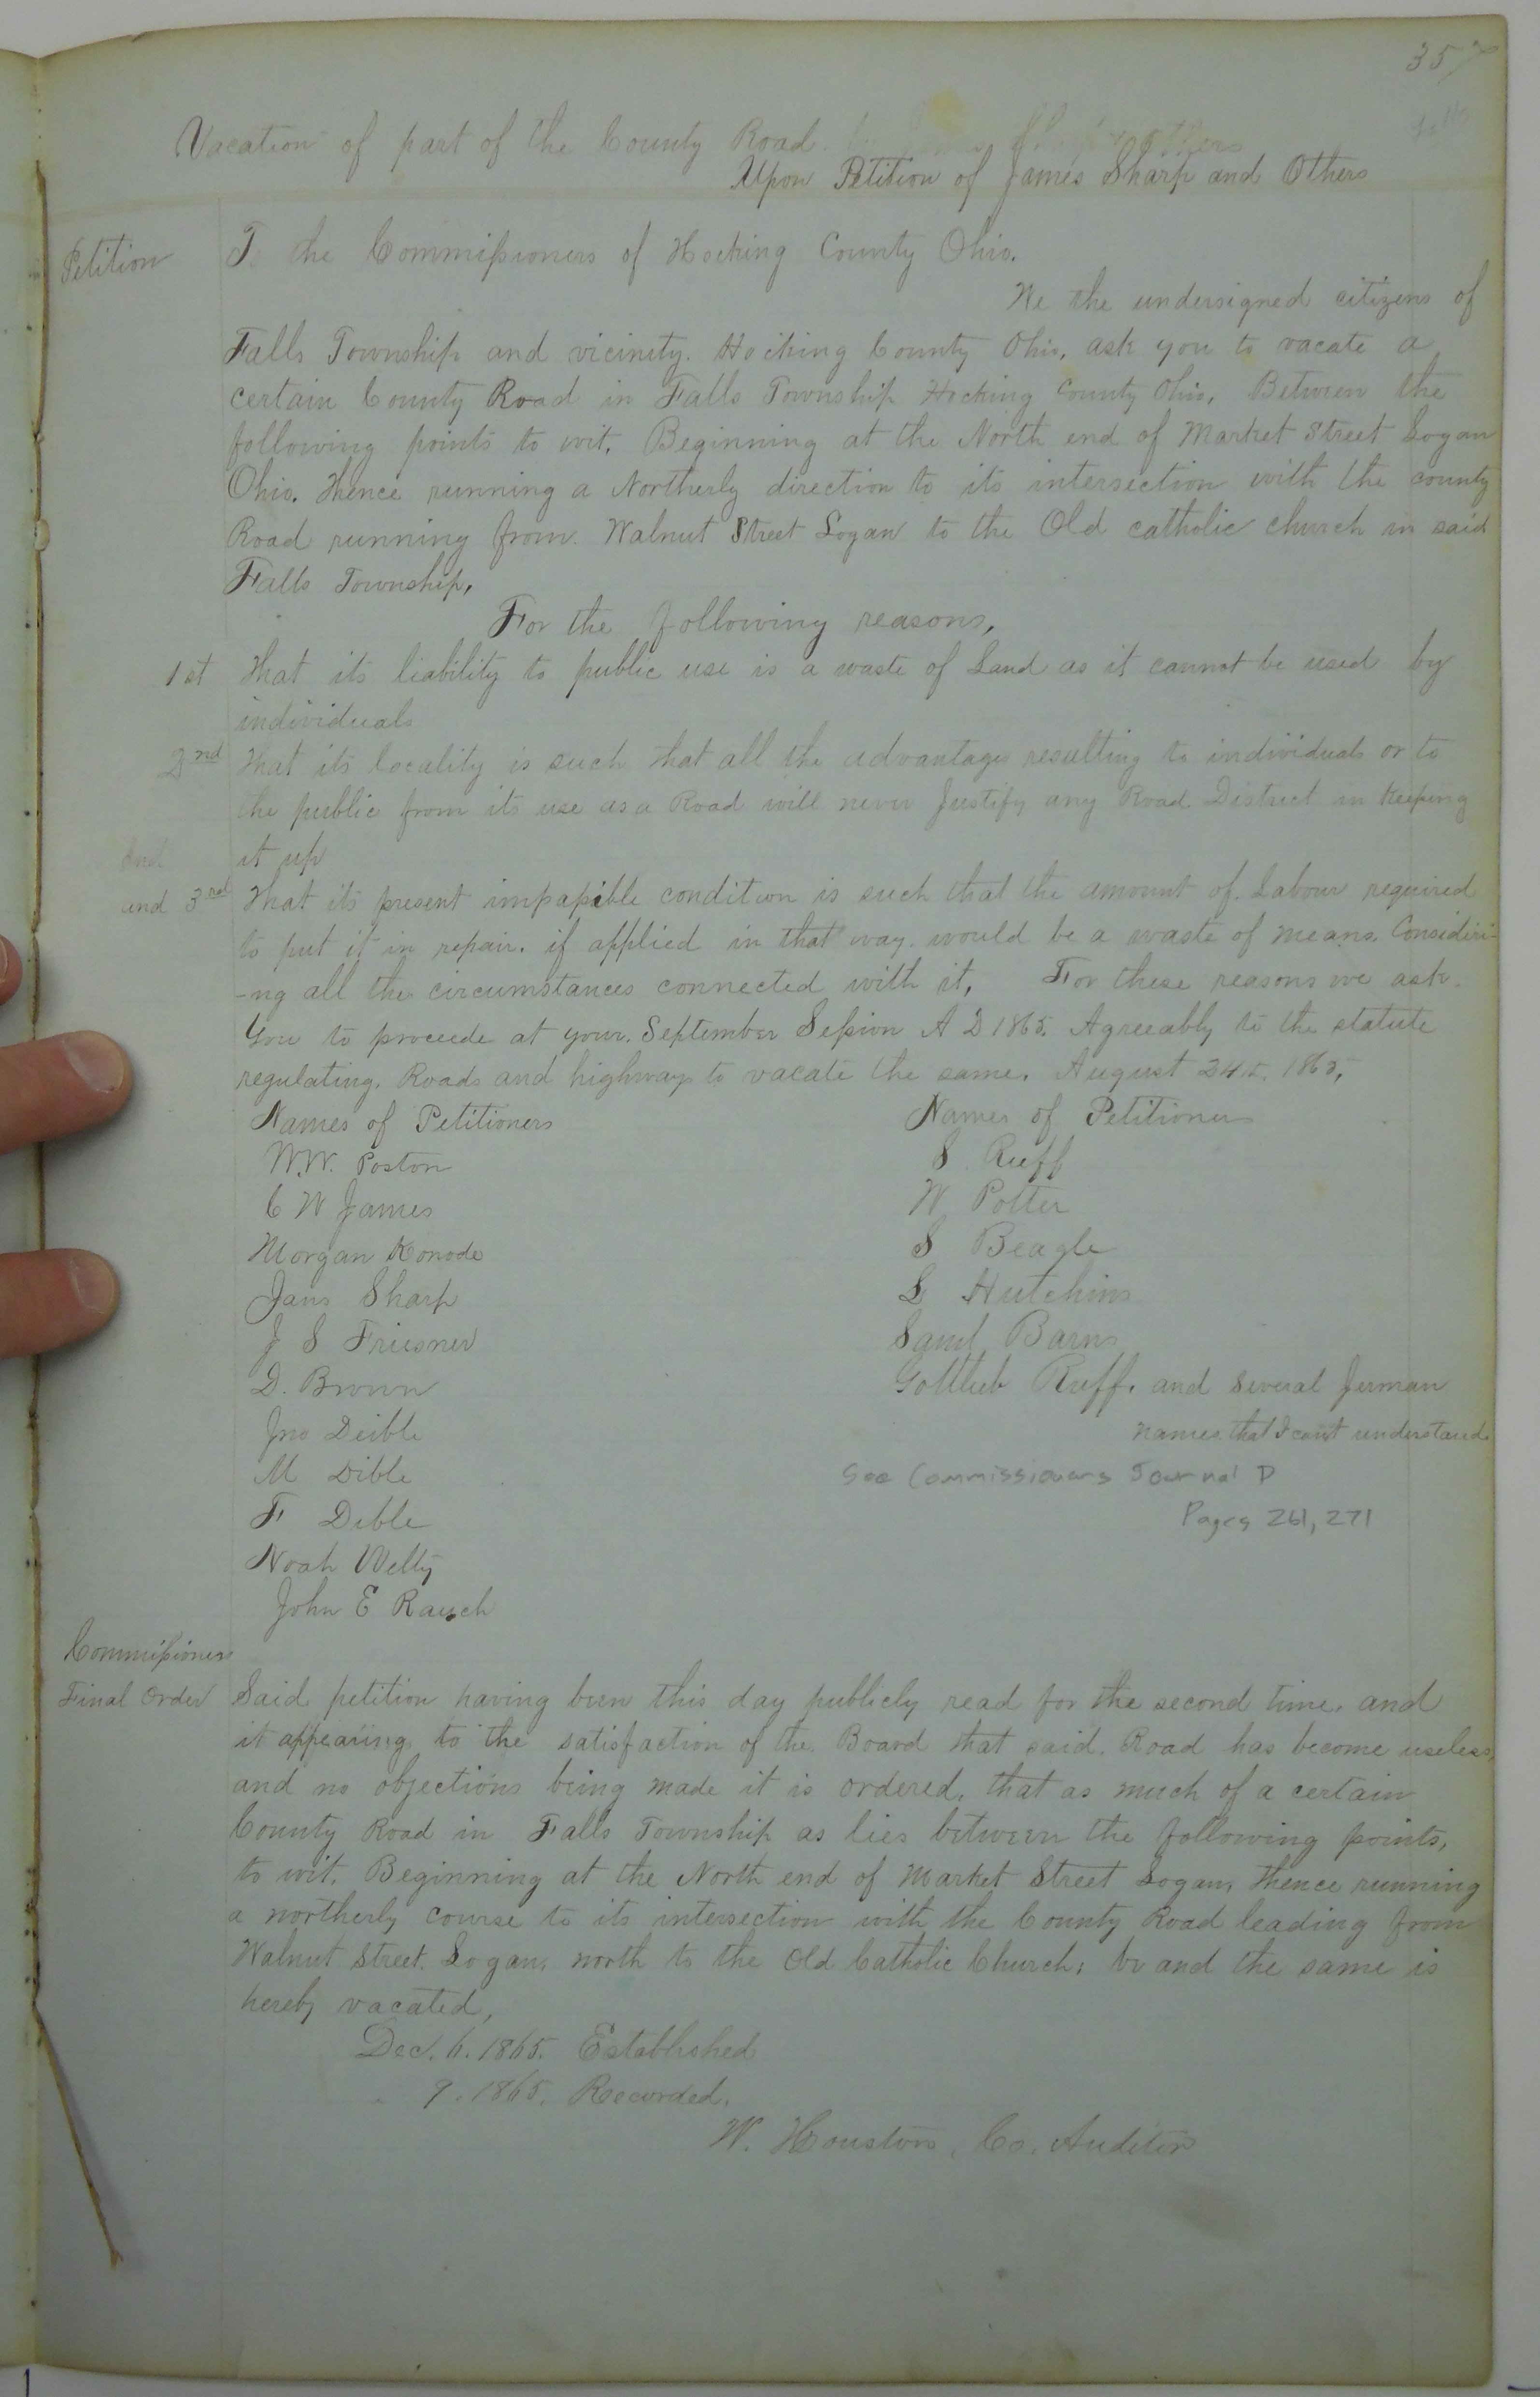 357
Vacation of part of the County Road.
Upon Petition of James Sharp and Others
Petition
To the Commissioners of Hocking County Ohio.
We the undersigned citizens of
Falls Township and vicinity. Hocking County Ohio, ask you to vacate a
certain County Road in Falls Township Hocking County Ohio, Between the
following points to wit. Beginning at the North end of Market Street Logan
Ohio. Thence running a Northerly direction to its intersection with the county
Road running from Walnut Street Logan to the Old catholic church in said
Falls Township,
For the following reasons,
1st That its liability to public use is a waste of Land as it cannot be used by
individuals
2nd That its locality is such that all the advantages resulting to individuals or to
the public from its use as a Road will never Justify any Road District in Keeping
it up
and 3rd That its present impassible condition is such that the amount of Labour required
to put it in repair. if applied in that way. would be a waste of means. Consideri-
-ng all the circumstances connected with it, For these reasons we ask
You to proceede at your September Session A D 1865. Agreeably to the statute
regulating. Roads and highways to vacate the same. August 24th, 1865,
Names of Petitioners
W.W. Poston
C W James
Morgan Konode
Jans Sharp
J S Friesner
D. Brown
Jno Deible
M Dible
F Dible
Noah Welty
John E Rauch
Names of Petitioners
S Ruff
W Potter
S Beagle
L Hutchins
Saml Barns
Gottlieb Ruff. and several Jerman
names that I cant understand
See Commissioners Journal D
Pages 261, 271
Commissioners
Final Order
Said petition having been this day publicly read for the second time, and
it appearing to the satisfaction of the Board that said Road has become useless,
and no objections being made it is ordered, that as much of a certain
County Road in Falls Township as lies between the following points,
to wit. Beginning at the North end of Market Street Logan, Thence running
a northerly course to its intersection with the County Road leading from
Walnut Street. Logan, north to the Old Catholic Church; be and the same is
hereby vacated,
Dec. 6. 1865. Established
9. 1865. Recorded.
W. Houston, Co. Auditor